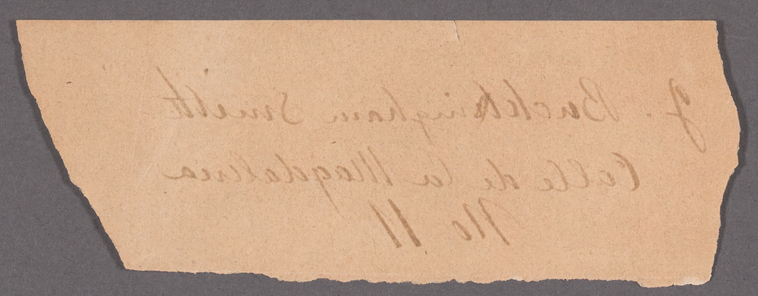 J. Buckingham Smith
Calle de la Magdalena
No 11